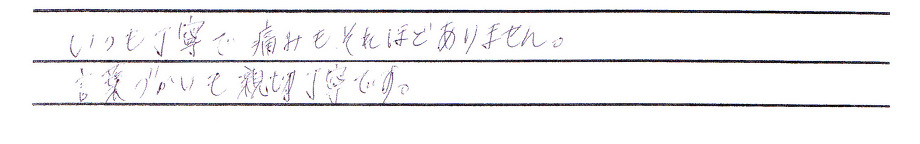 いつも丁寧で痛みもそれほどありません。
言葉づかいも親切丁寧です。